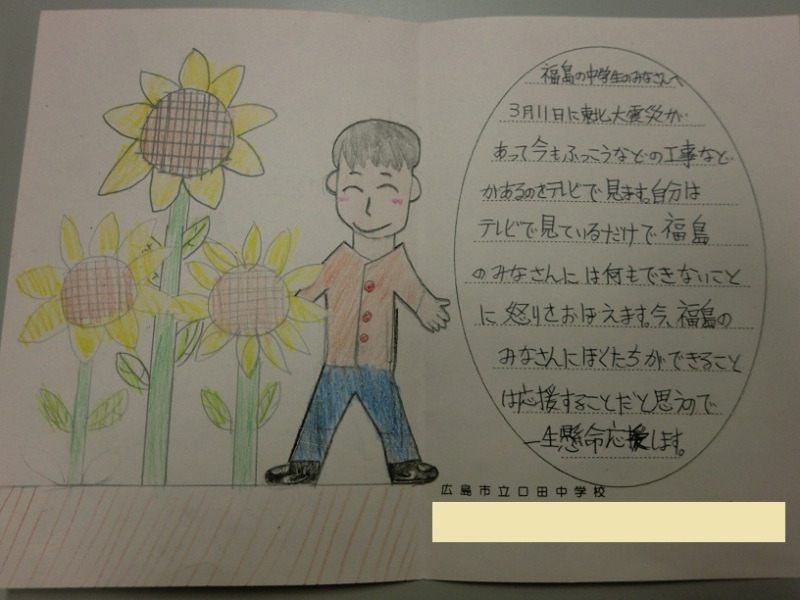 福島の中学生のみなさんへ
3月11日に東北大震災が
あって今もふっこうなどの工事など
があるのをテレビで見ます。自分は
テレビで見ているだけで福島
のみなさんには何もできないこと
に怒りをおぼえます。今、福島の
みなさんにぼくたちができること
は応援することだと思うので
一生懸命応援します。
広島市立口田中学校